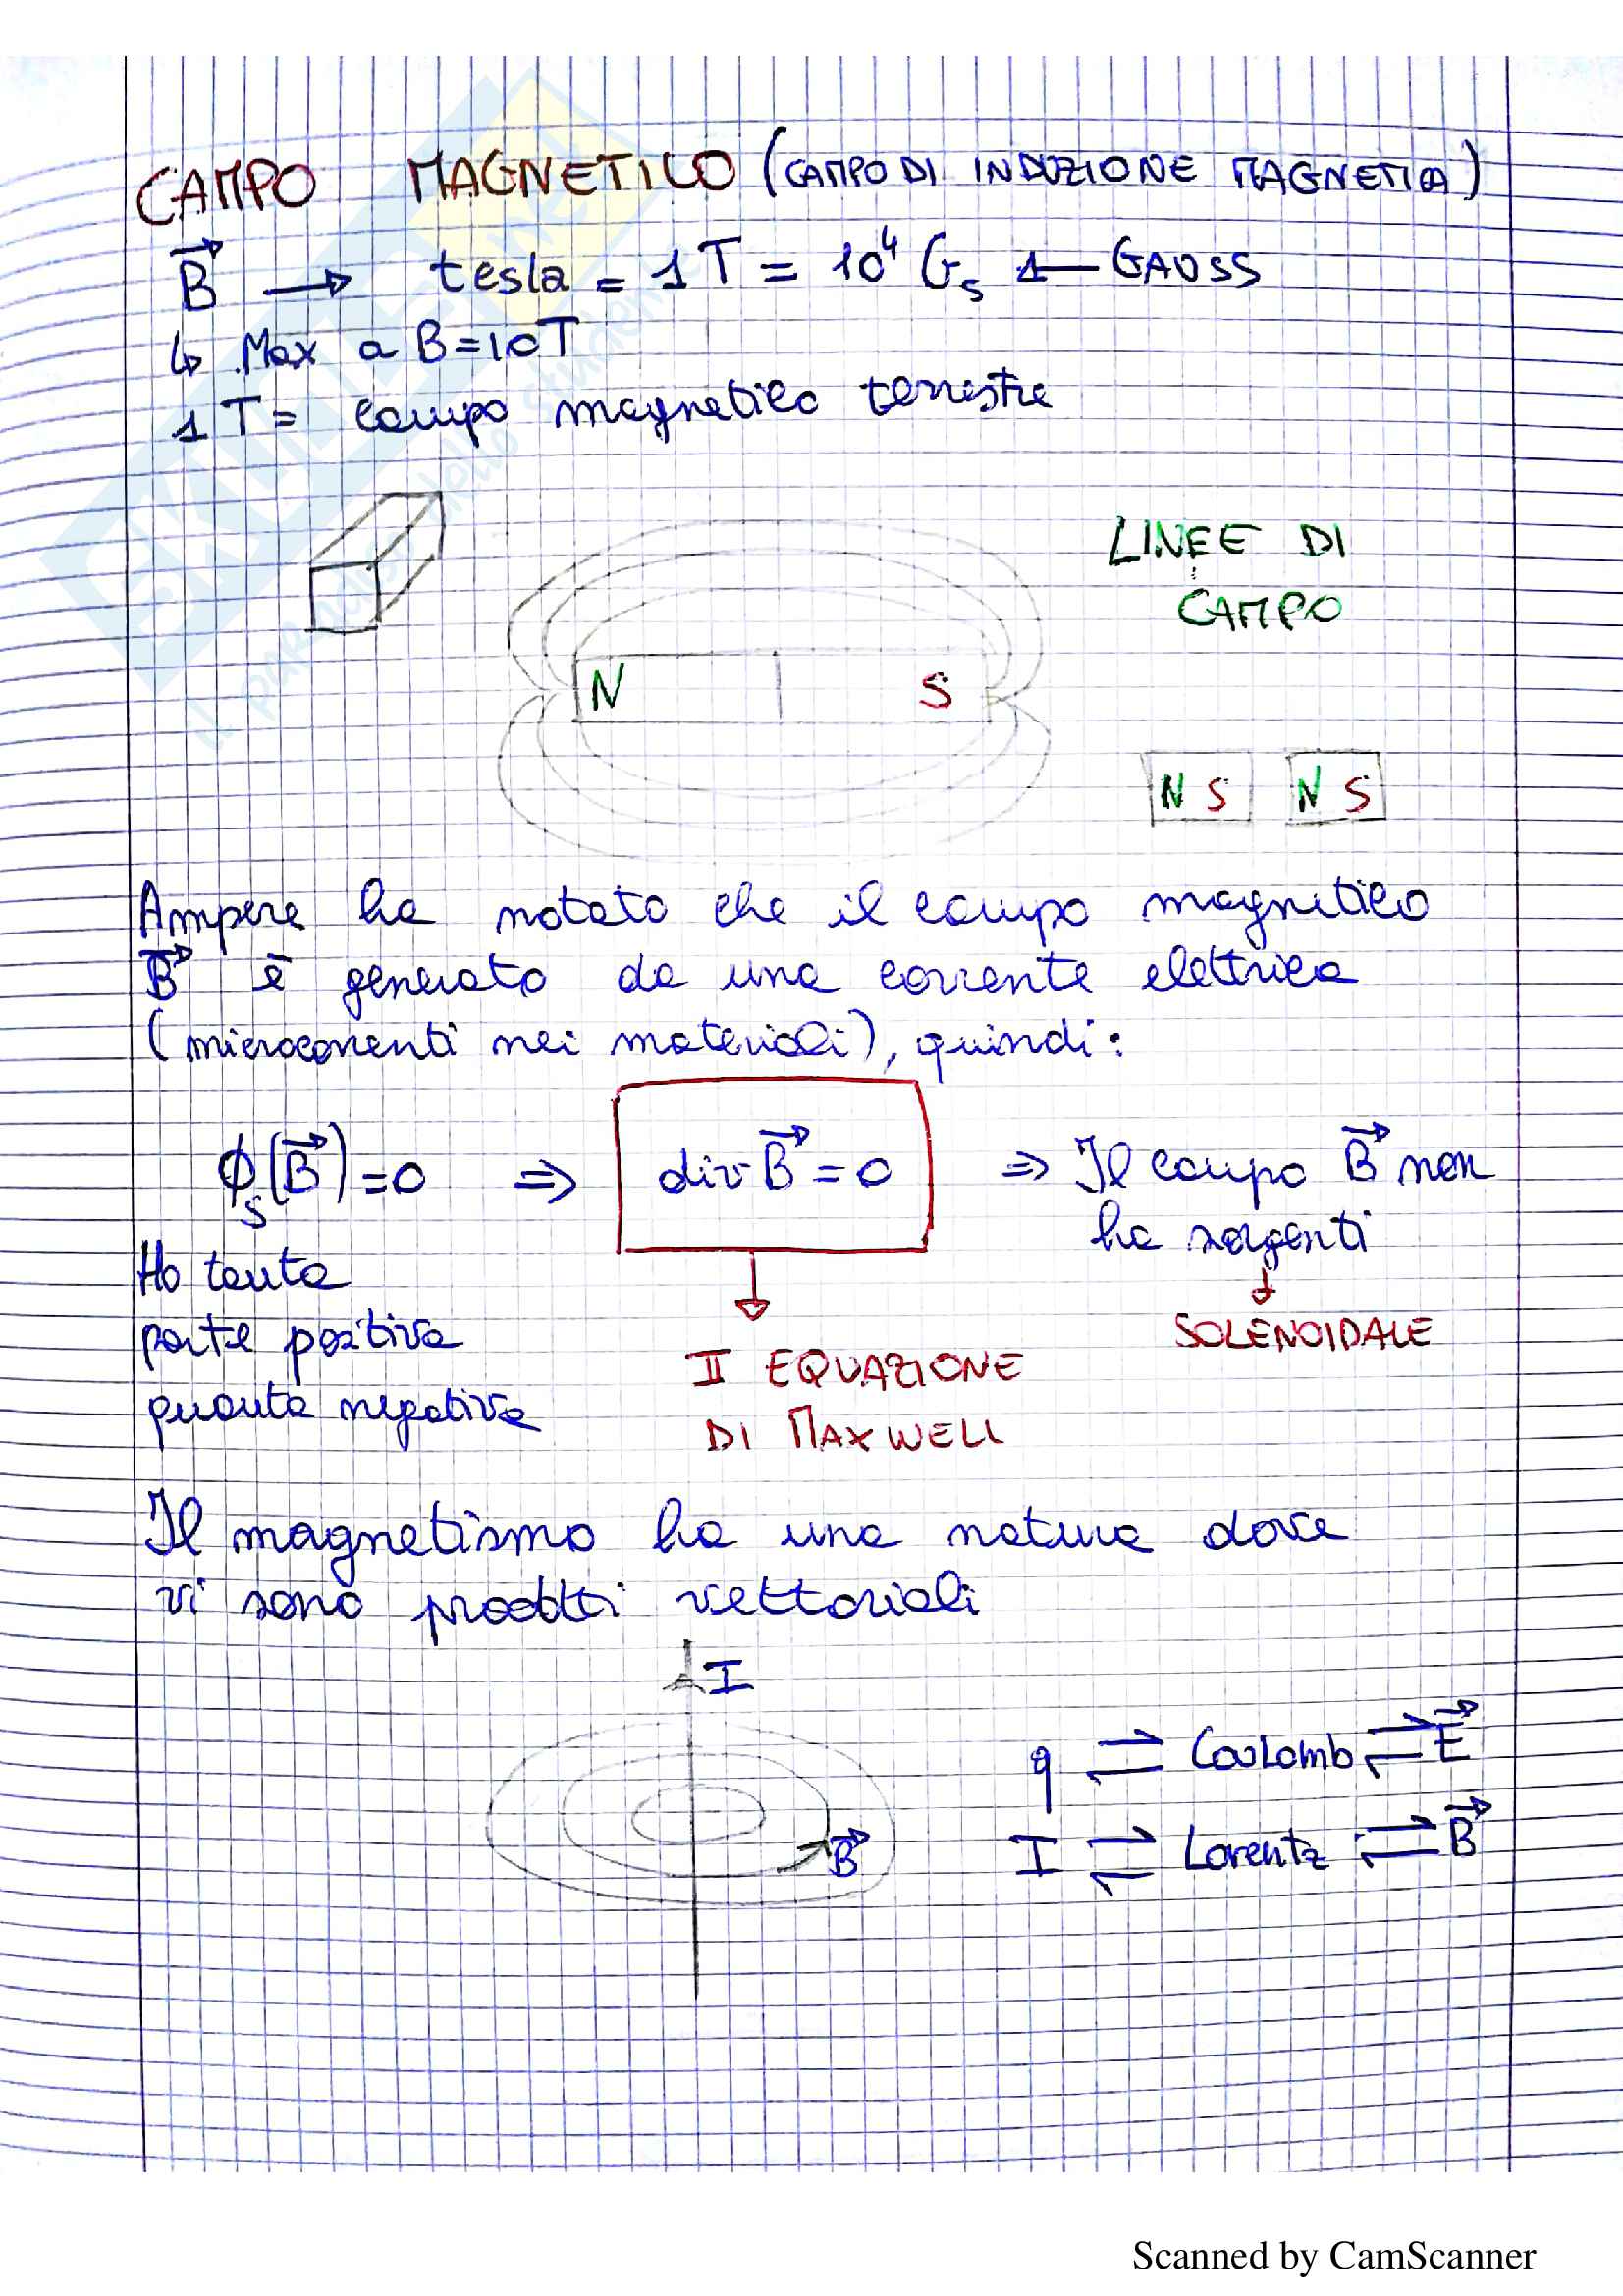 CAMPO MAGNETICO (CAMPO DI INDUZIONE MAGNETICA)
B → tesla = 1T = 10⁴ Gs ← GAUSS
↳ Max a B=10T
1 T = campo magnetico terrestre
LINEE DI
CAMPO
N S
N S N S
Ampere ha notato che il campo magnetico
B è generato da una corrente elettrica
(microcorrenti nei materiali), quindi:
ϕs(B)=0 ⇒ div B = 0 ⇒ Il campo B non
ha sorgenti
Ho tanta
parte positiva
quanta negativa
SOLENOIDALE
II EQUAZIONE
DI MAXWELL
Il magnetismo ha una natura dove
vi sono prodotti vettoriali
I
B
q ⇌ Coulomb ⇌ E
I ⇌ Lorentz ⇌ B
SKUOLA.net
il paradiso dello studente
Scanned by CamScanner